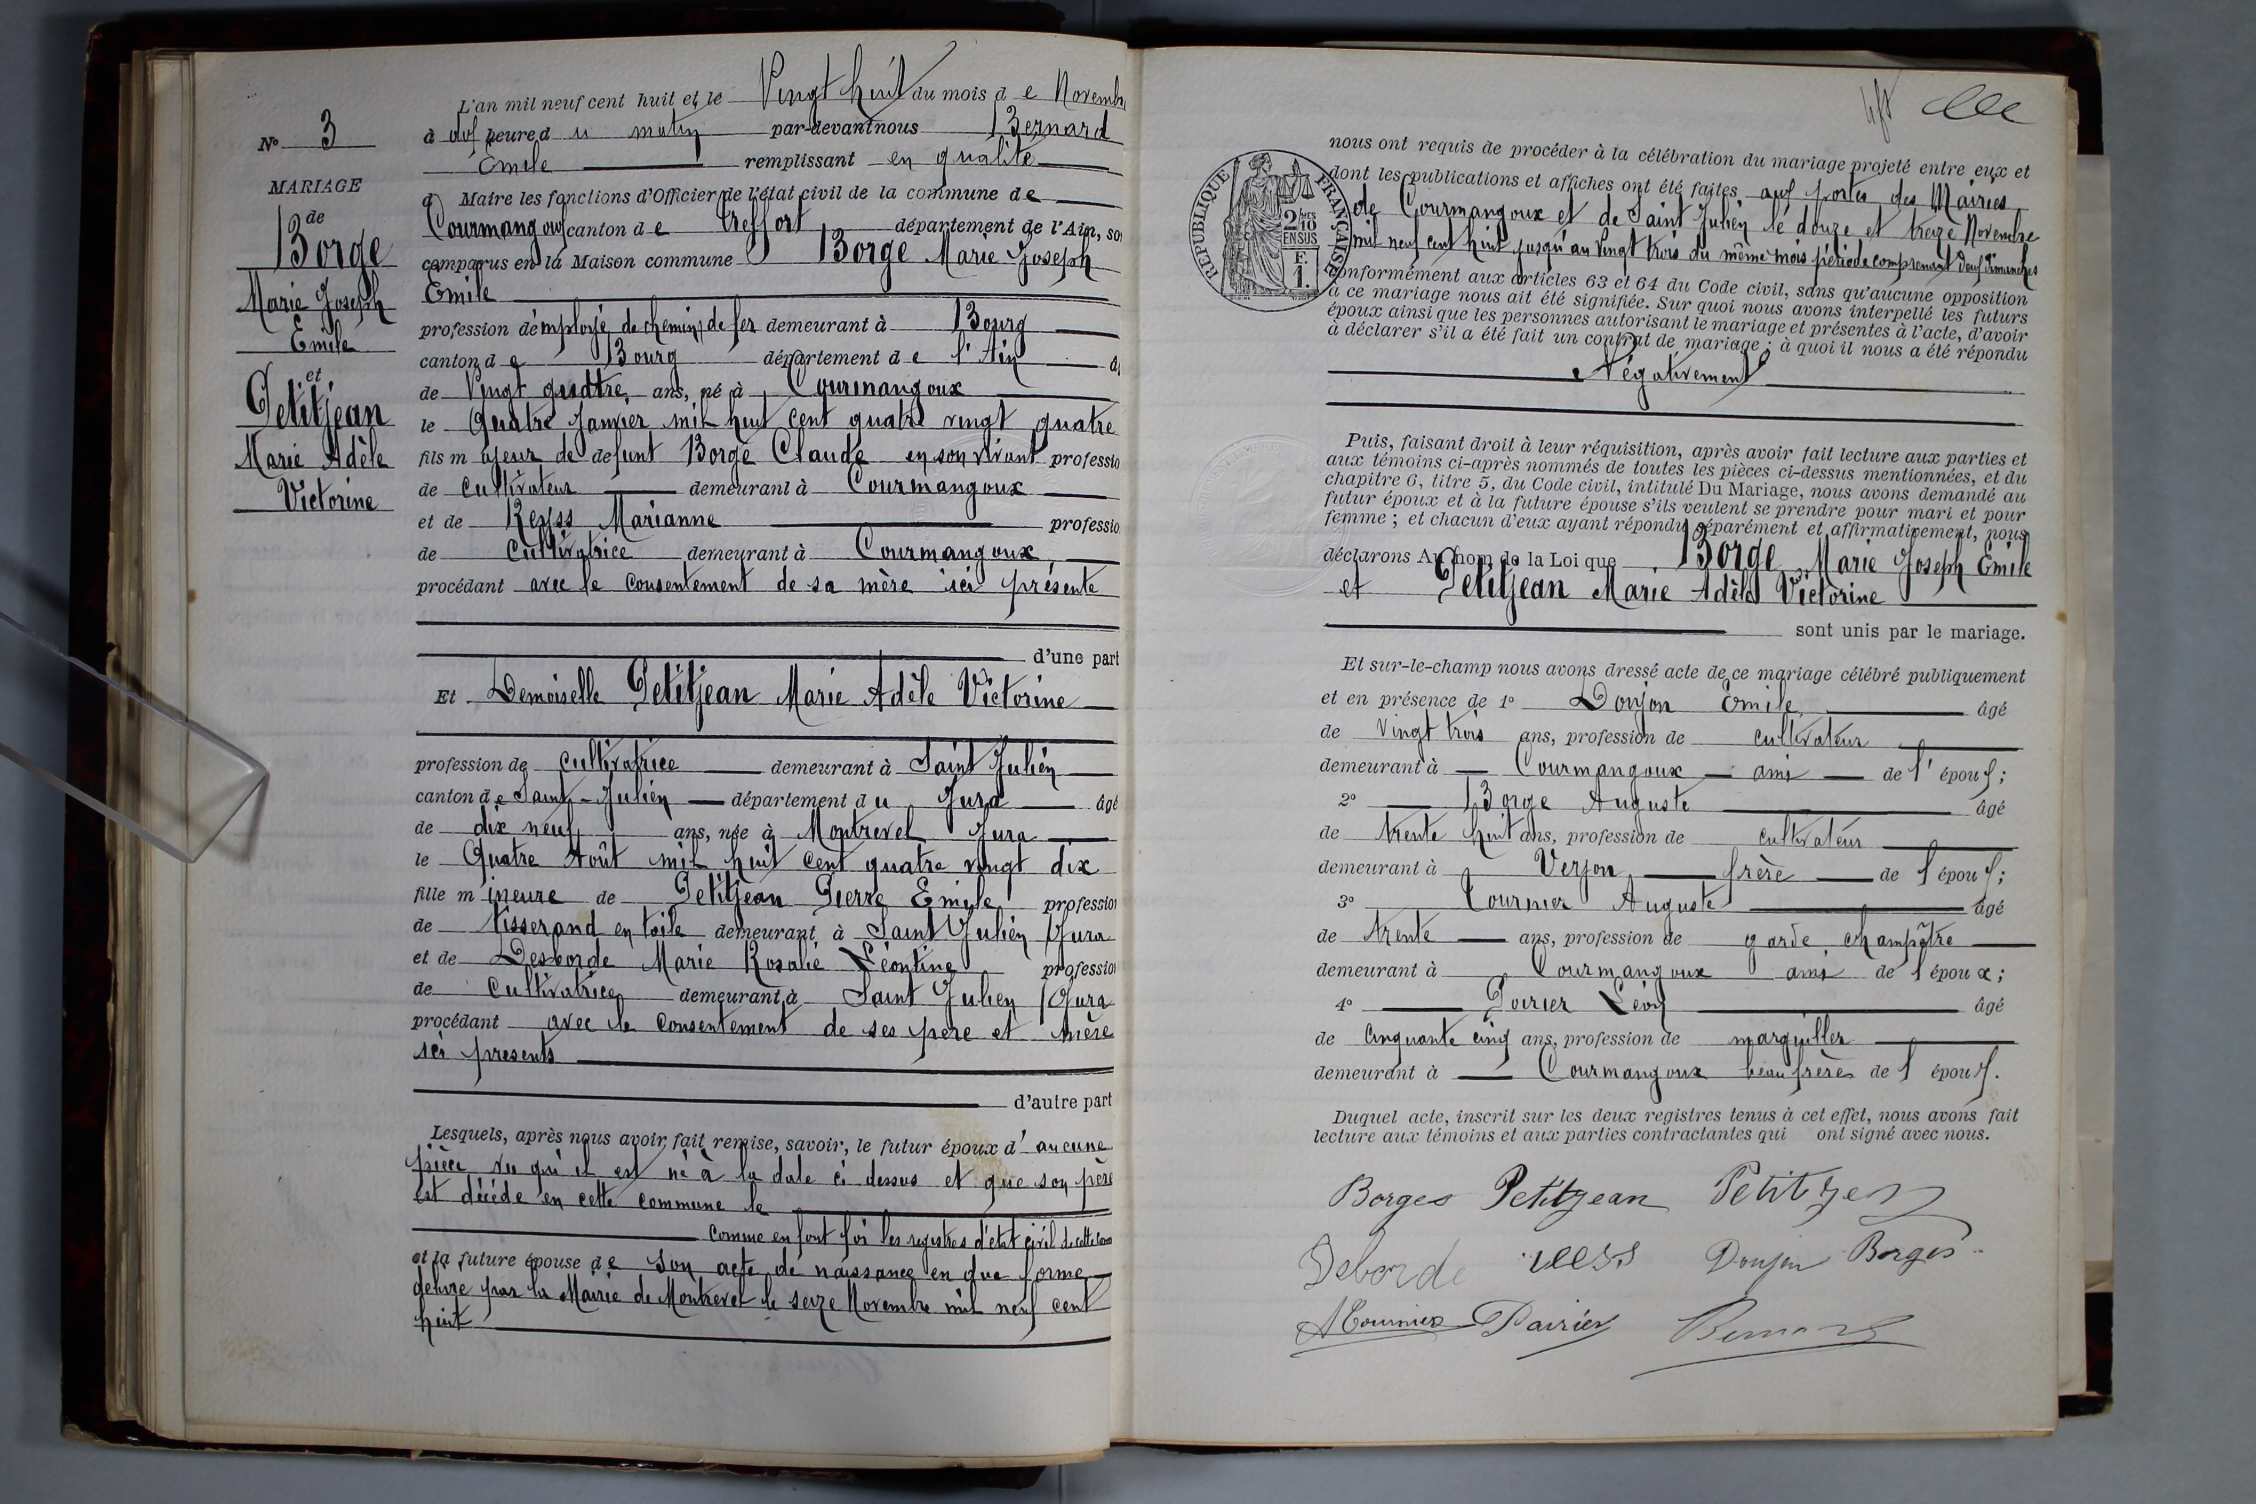 N° 3
MARIAGE
de
Borge
Marie Joseph
Emile
et
Petitjean
Marie Adèle
Victorine
L'an mil neuf cent huit et le Vingt huit du mois d e Novemb
à heure d u matin par-devant nous Bernard
Emile remplissant en qualité
d Maire les fonctions d'Officier de l'état civil de la commune de
Courmangoux canton d e Treffort département de l'Ain, so
comparus en la Maison commune Borge Marie Joseph
Emile
profession d'employé de chemin de fer demeurant à Bourg
canton d e Bourg département d e l'Ain â
de Vingt quatre ans, né à Courmangoux
le Quatre Janvier mil huit cent quatre vingt quatre
fils m ajeur de defunt Borge Claude en son vivant professio
de Cultivateur demeurant à Courmangoux
et de Reyss Marianne professio
de Cultivatrice demeurant à Courmangoux
procédant avec le consentement de sa mère ici présente
d'une part
Et Demoiselle Petitjean Marie Adèle Victorine
profession de Cultivatrice demeurant à Saint Julien
canton d e Saint-Julien département d u Jura âgé
de dix neuf ans, née à Montrevel Jura
le Quatre Août mil huit cent quatre vingt dix
fille m ineure de Petitjean Pierre Emile profession
de tisserand en toile demeurant à Saint Julien (Jura
et de Desborde Marie Rosalie Léontine profession
de Cultivatrice demeurant à Saint Julien (Jura
procédant avec le consentement de ses père et mère
ici presents
d'autre part
Lesquels, après nous avoir fait remise, savoir, le futur époux d' aucune
pièce vu qu'il est né à la date ci dessus et que son père
est décédé en cette commune le
comme en font foi les registres d'état civil de cette
et la future épouse d e son acte de naissance en due forme
délivré par la Mairie de Montrevel le seize Novembre mil neuf cent
huit
nous ont requis de procéder à la célébration du mariage projeté entre eux et
dont les publications et affiches ont été faites aux portes des Mairies
de Courmangoux et de Saint Julien le douze et treize Novembre
mil neuf cent huit jusqu'au vingt trois du même mois période comprenant deux dimanches
conformément aux articles 63 et 64 du Code civil, sans qu'aucune opposition
à ce mariage nous ait été signifiée. Sur quoi nous avons interpellé les futurs
époux ainsi que les personnes autorisant le mariage et présentes à l'acte, d'avoir
à déclarer s'il a été fait un contrat de mariage ; à quoi il nous a été répondu
Négativement
RÉPUBLIQUE FRANÇAISE
2/10
EN SUS
F.
1.
Puis, faisant droit à leur réquisition, après avoir fait lecture aux parties et
aux témoins ci-après nommés de toutes les pièces ci-dessus mentionnées, et du
chapitre 6, titre 5, du Code civil, intitulé Du Mariage, nous avons demandé au
futur époux et à la future épouse s'ils veulent se prendre pour mari et pour
femme ; et chacun d'eux ayant répondu séparément et affirmativement, nous
déclarons Au nom de la Loi que Borge Marie Joseph Emile
et Petitjean Marie Adèle Victorine
sont unis par le mariage.
Et sur-le-champ nous avons dressé acte de ce mariage célébré publiquement
et en présence de 1° Donjon Emile âgé
de vingt trois ans, profession de cultivateur
demeurant à Courmangoux ami de l' époux ;
2° Borge Auguste âgé
de trente huit ans, profession de cultivateur
demeurant à Verjon frère de l époux ;
3° Tournier Auguste âgé
de trente ans, profession de garde champêtre
demeurant à Courmangoux ami de l époux ;
4° Poirier Léon âgé
de cinquante cinq ans, profession de marguiller
demeurant à Courmangoux beau frère de l époux.
Duquel acte, inscrit sur les deux registres tenus à cet effet, nous avons fait
lecture aux témoins et aux parties contractantes qui ont signé avec nous.
Borges Petitjean Petitjean
Deborde Donjon Borges
Tournier Poirier Bernard